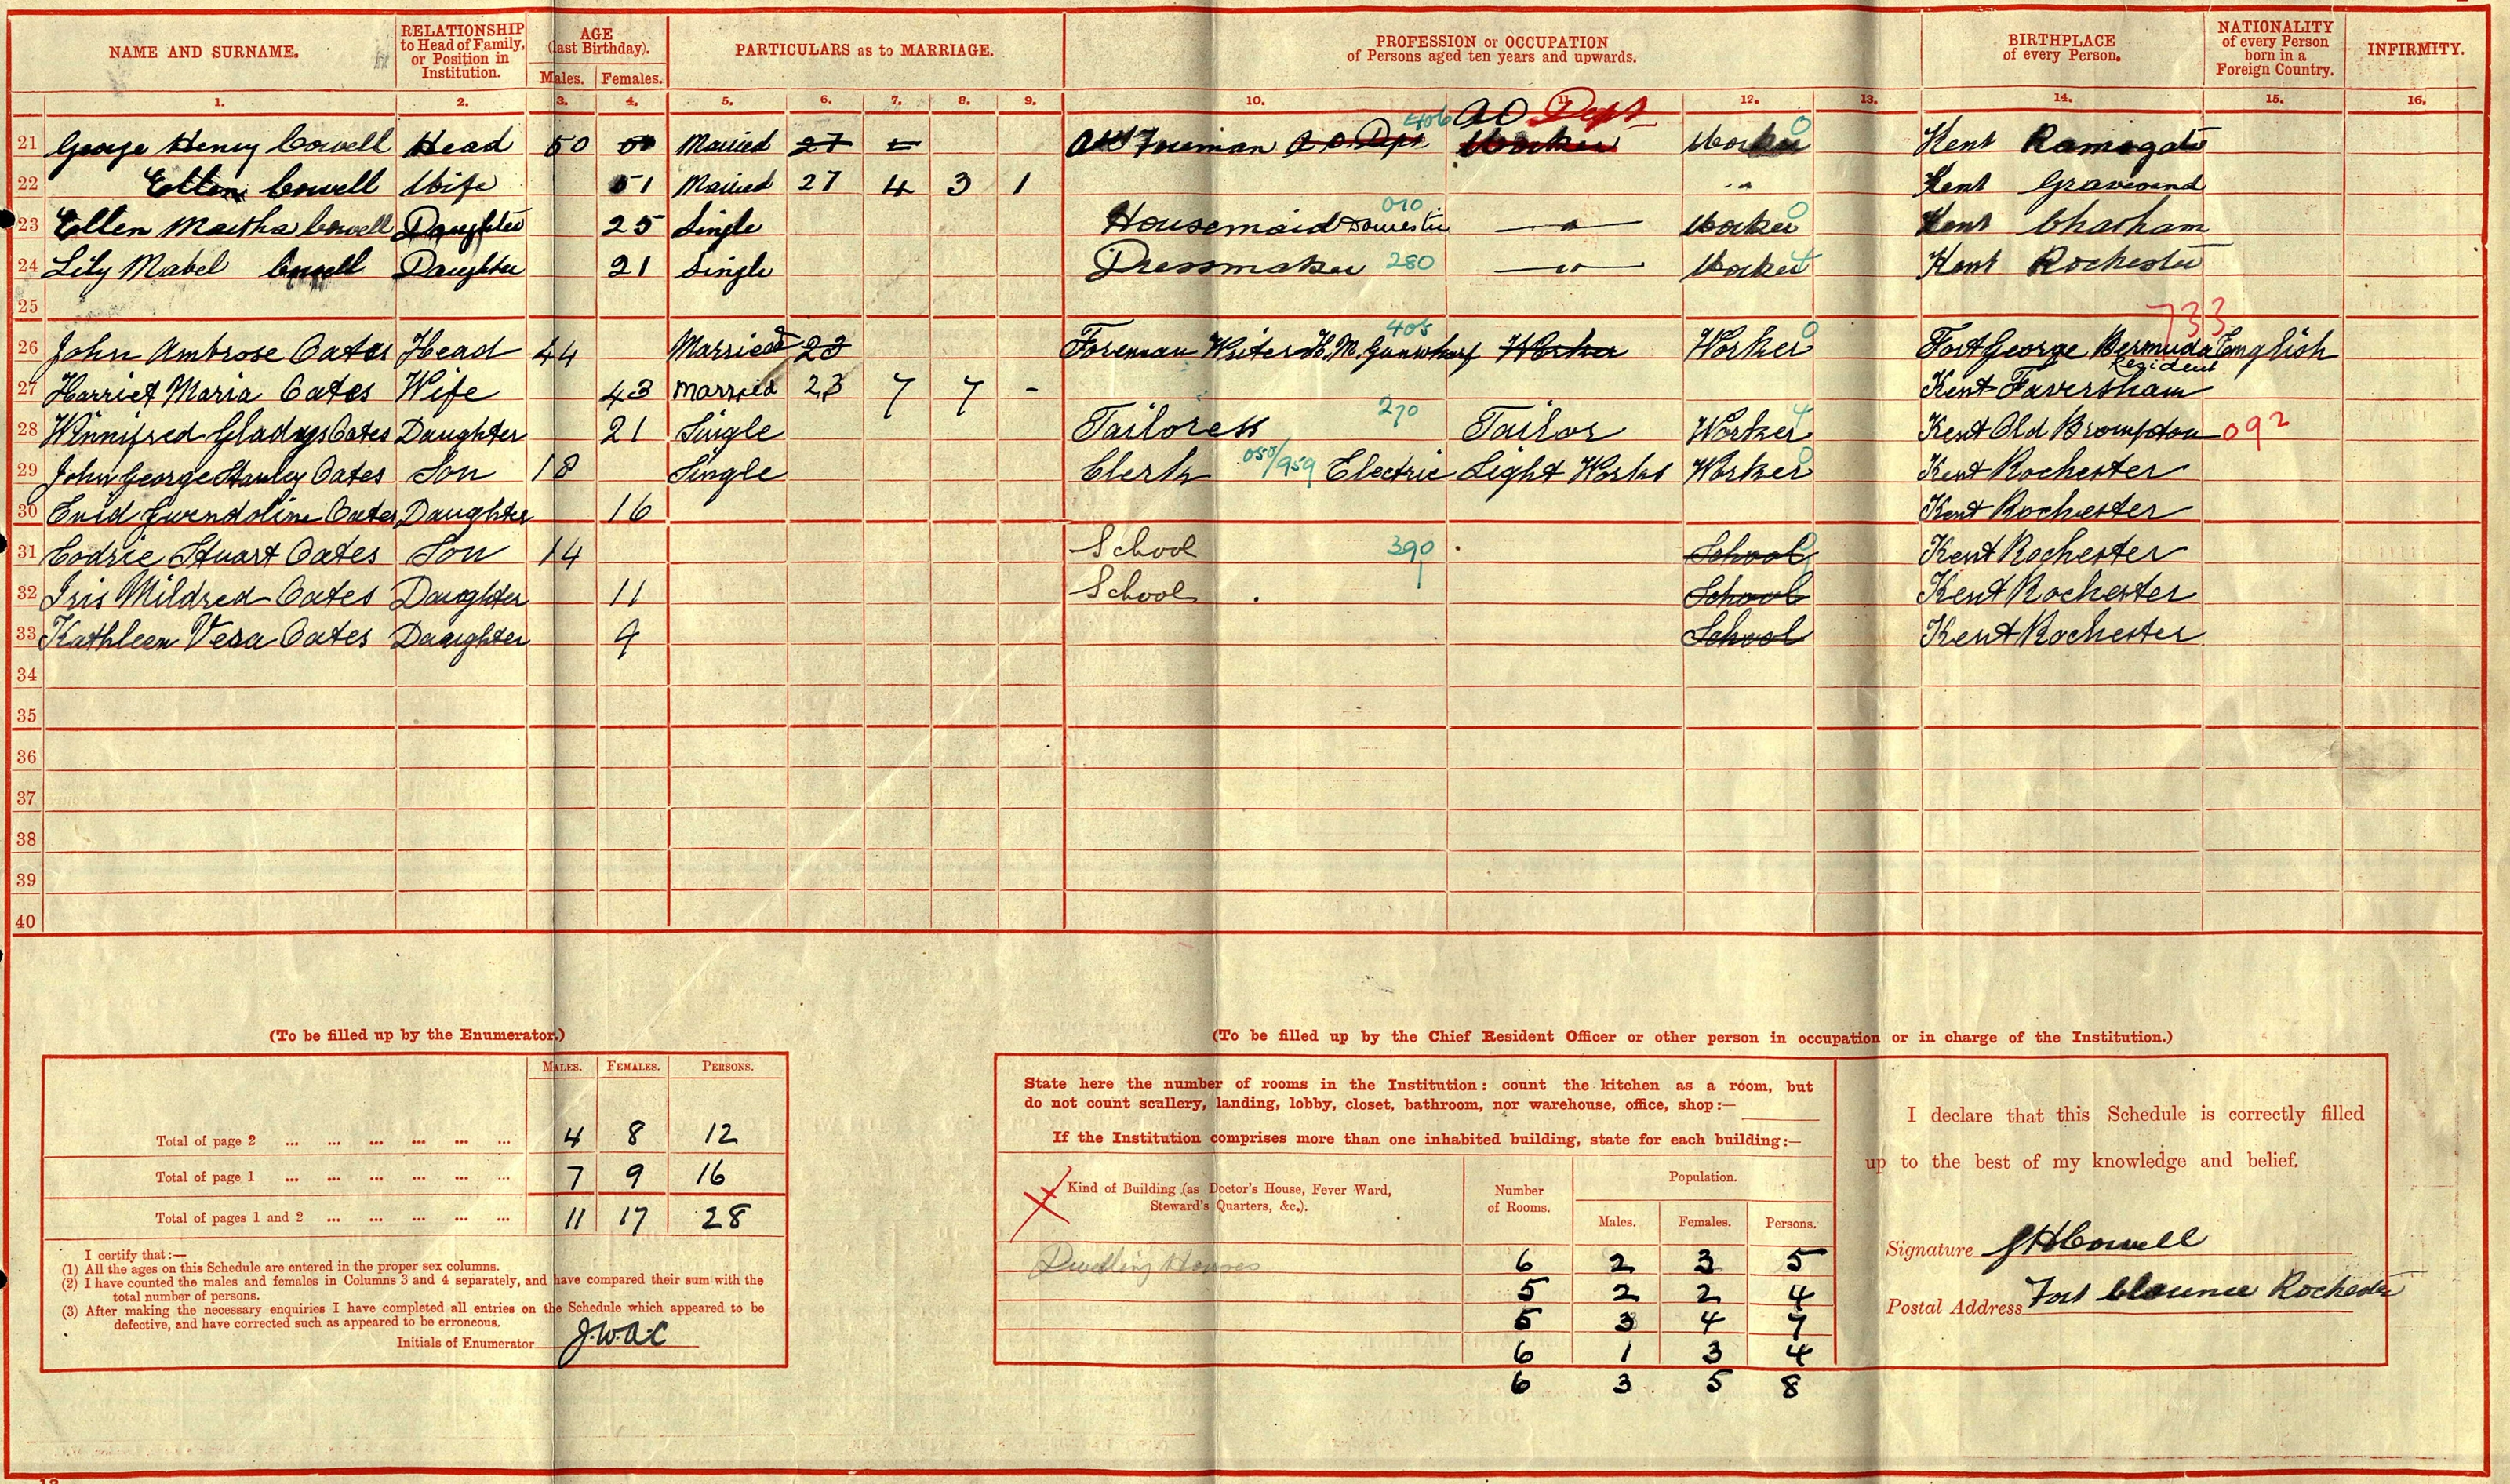 NAME AND SURNAME. RELATIONSHIP to Head of Family, or Position in Institution. AGE (last Birthday). Males. Females. PARTICULARS as to MARRIAGE. PROFESSION or OCCUPATION of Persons aged ten years and upwards. BIRTHPLACE of every Person. NATIONALITY of every Person born in a Foreign Country. INFIRMITY.
1. 2. 3. 4. 5. 6. 7. 8. 9. 10. 11. 12. 13. 14. 15. 16.
406 AO Dept
21 George Henry Cowell Head 50 Married 27 Foreman A O Dept Worker Worker Kent Ramsgate
22 Ellen Cowell Wife 51 Married 27 4 3 1 Kent Gravesend
23 Ellen Martha Cowell Daughter 25 Single Housemaid Domestic 010 — " — Worker 0 Kent Chatham
24 Lily Mabel Cowell Daughter 21 Single Dressmaker 280 — " — Worker Kent Rochester
25
733
26 John Ambrose Oates Head 44 Married 23 Foreman Writer H.M. Gunwharf 405 Worker Worker 0 Fort George Bermuda English
Resident
27 Harriet Maria Oates Wife 43 Married 23 7 7 - Kent Faversham
28 Winnifred Gladys Oates Daughter 21 Single Tailoress 270 Tailor Worker Kent Old Brompton 092
29 John George Stanley Oates Son 18 Single Clerk 050/959 Electric Light Works Worker 0 Kent Rochester
30 Enid Gwendoline Oates Daughter 16 Kent Rochester
31 Cedric Stuart Oates Son 14 School 390 School Kent Rochester
32 Iris Mildred Oates Daughter 11 School School Kent Rochester
33 Kathleen Vera Oates Daughter 9 School Kent Rochester
34
35
36
37
38
39
40
(To be filled up by the Enumerator.)
MALES. FEMALES. PERSONS.
Total of page 2 ... ... ... ... ... ... 4 8 12
Total of page 1 ... ... ... ... ... ... 7 9 16
Total of pages 1 and 2 ... ... ... ... ... 11 17 28
I certify that:—
(1) All the ages on this Schedule are entered in the proper sex columns.
(2) I have counted the males and females in Columns 3 and 4 separately, and have compared their sum with the
total number of persons.
(3) After making the necessary enquiries I have completed all entries on the Schedule which appeared to be
defective, and have corrected such as appeared to be erroneous.
Initials of Enumerator J.W.A.C
(To be filled up by the Chief Resident Officer or other person in occupation or in charge of the Institution.)
State here the number of rooms in the Institution: count the kitchen as a room, but
do not count scullery, landing, lobby, closet, bathroom, nor warehouse, office, shop:—
If the Institution comprises more than one inhabited building, state for each building:—
Kind of Building (as Doctor's House, Fever Ward,
Steward's Quarters, &c.).
Number of Rooms.
Population.
Males. Females. Persons.
Dwelling Houses 6 2 3 5
5 2 2 4
5 3 4 7
6 1 3 4
6 3 5 8
I declare that this Schedule is correctly filled
up to the best of my knowledge and belief.
Signature G H Cowell
Postal Address Fort Clarence Rochester